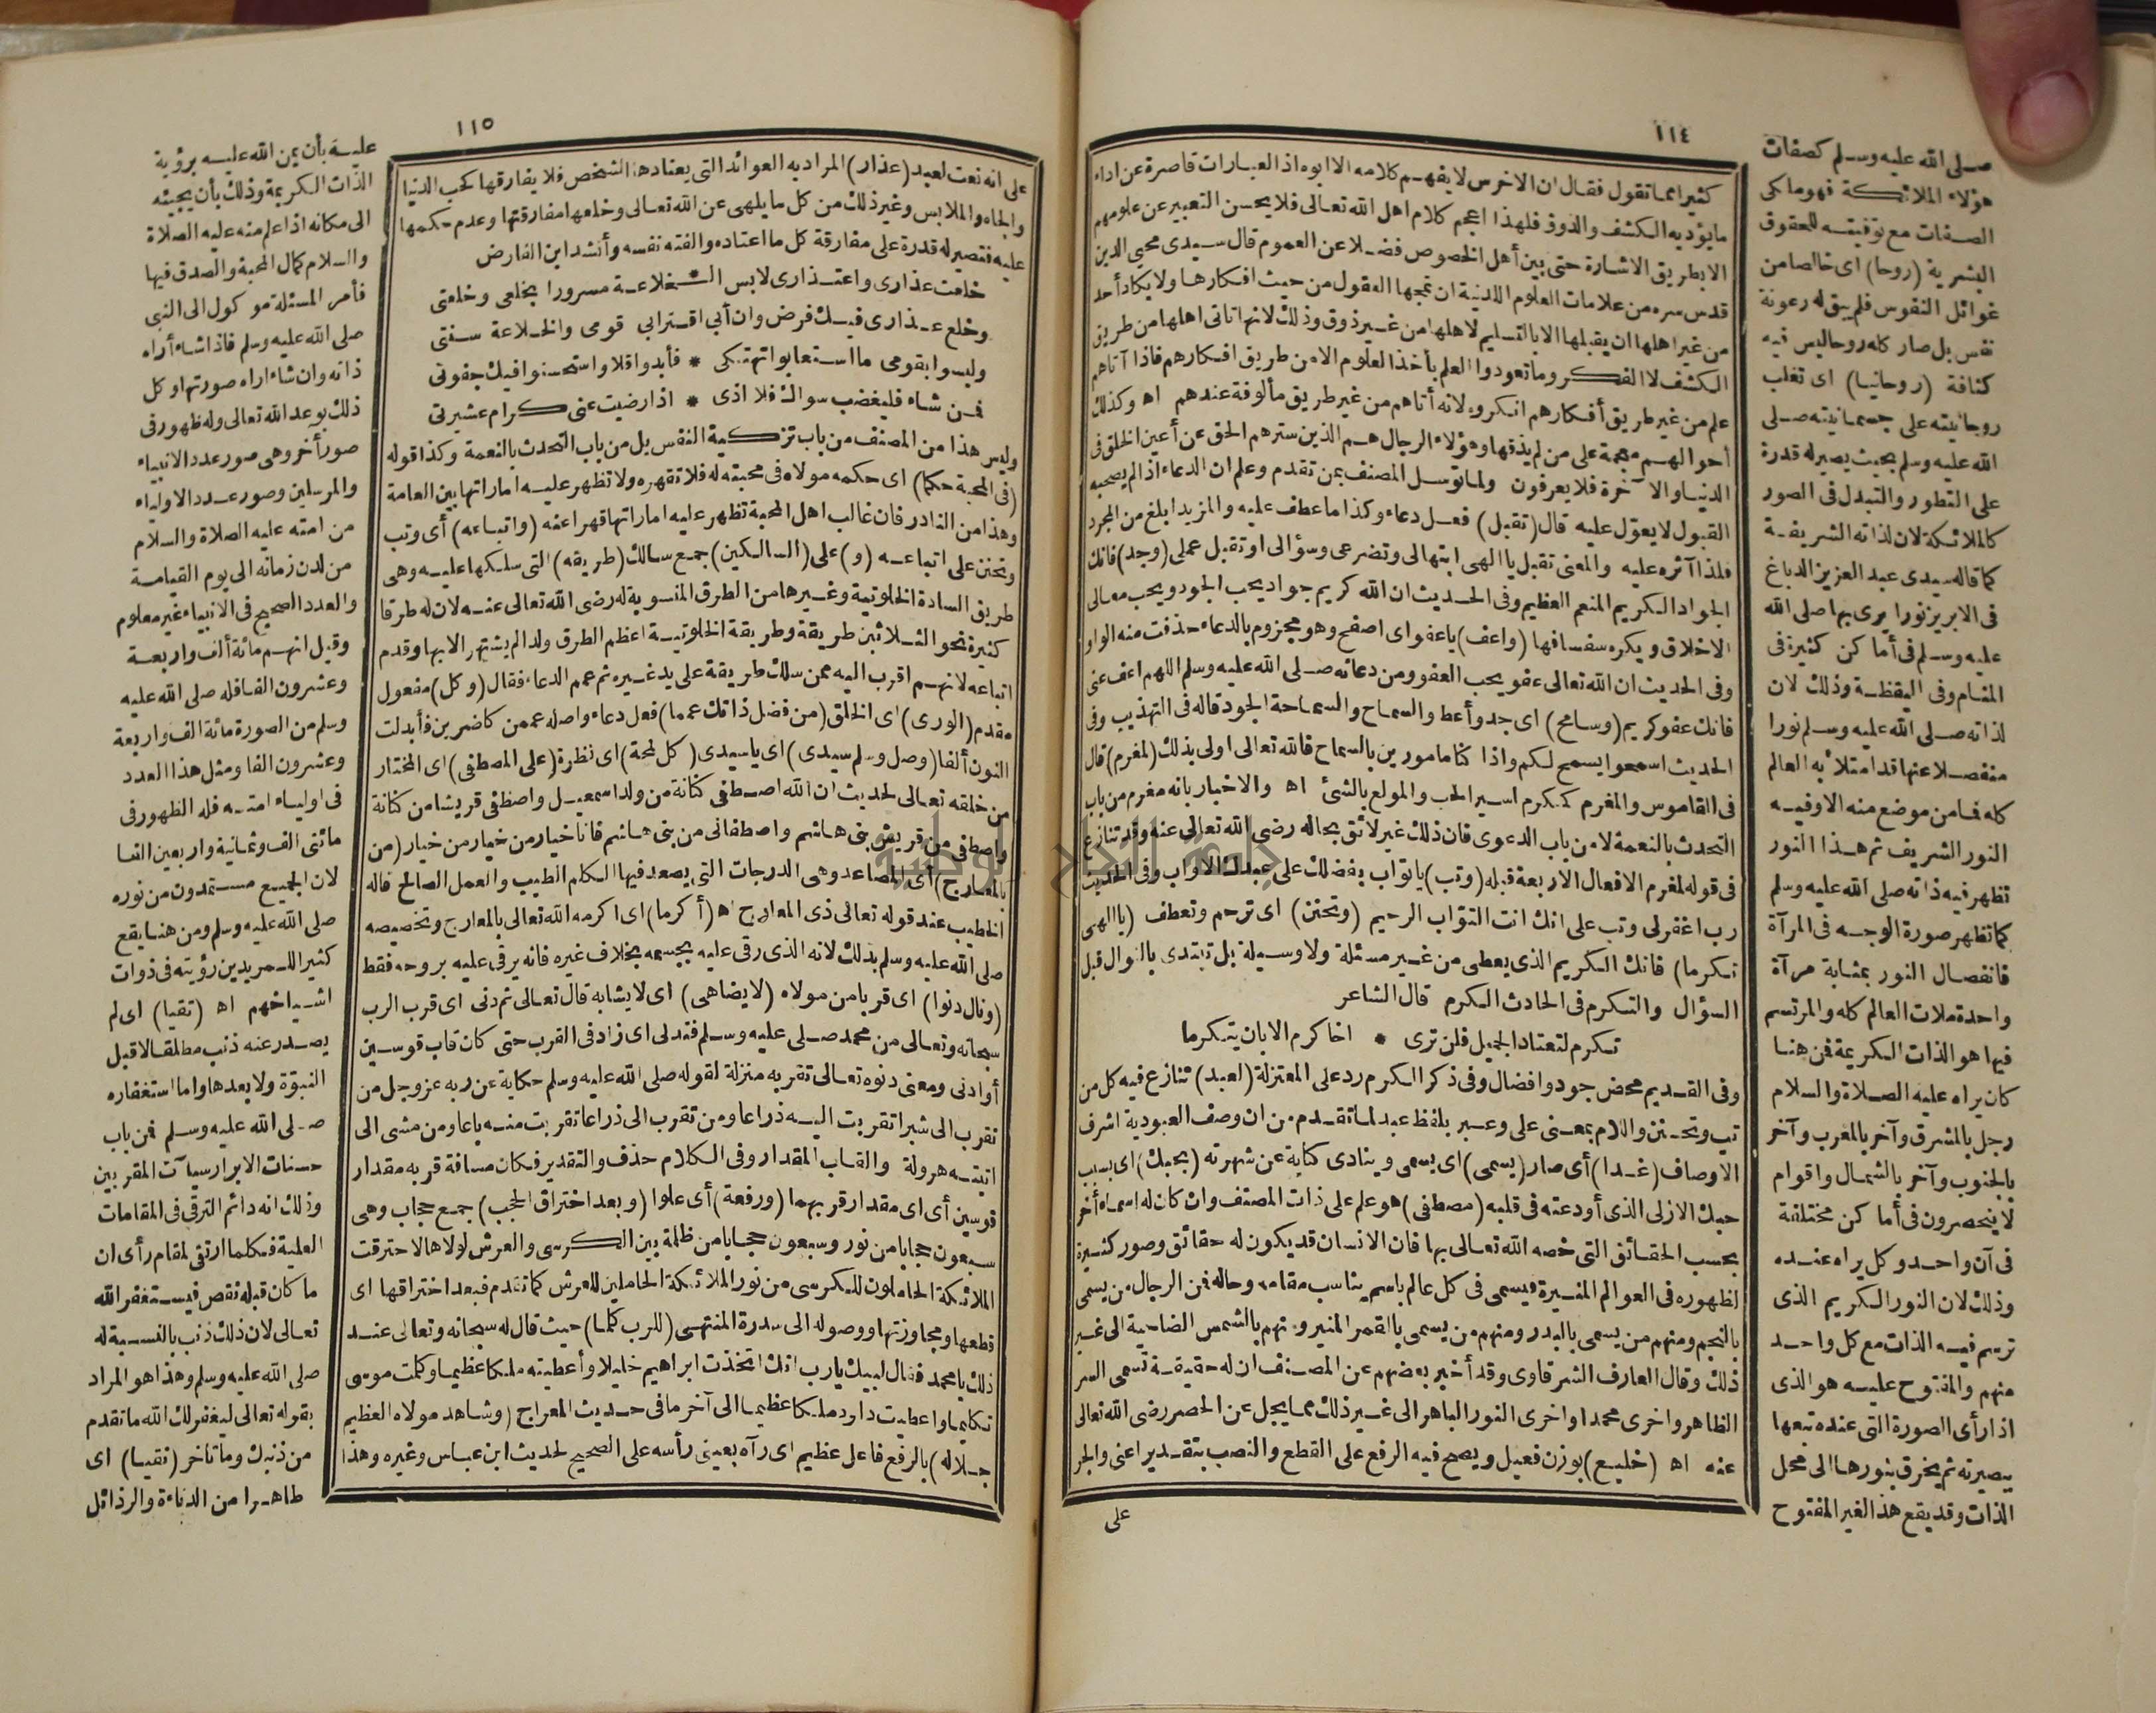 ١١٤
كثيرا مما تقول فقال ان الاخرس لا يفهم كلامه الا ابوه اذ العبارات قاصرة عن اداء
ما يؤديه الكشف والذوق فلهذا اعجم كلام اهل الله تعالى فلا يحسن التعبير عن علومهم
الا بطريق الاشارة حتى بين أهل الخصوص فضلا عن العموم قال سيدى محيى الدين
قدس سره من علامات العلوم اللدنية ان تمجها العقول من حيث افكارها ولا يكاد أحد
من غير اهلها ان يقبلها الا بالتسليم لاهلها من غير ذوق وذلك لانها تاتى اهلها من طريق
الكشف لا الفكر وما تعودوا العلم بأخذ العلوم الا من طريق افكارهم فاذا آتاهم
علم من غير طريق أفكارهم انكروه لانه أتاهم من غير طريق مألوفة عندهم اه وكذلك
أحوالهم مبهمة على من لم يذقها وهؤلاء الرجال هم الذين سترهم الحق عن أعين الخلق فى
الدنيا والآخرة فلا يعرفون ولما توسل المصنف بمن تقدم وعلم ان الدعاء اذا لم يصحبه
القبول لا يعوّل عليه قال (تقبل) فعل دعاء وكذا ما عطف عليه والمزيد ابلغ من المجرد
فلذا آثره عليه والمعنى تقبل يا الهى ابتهالى وتضرعى وسؤالى او تقبل عملى (وجد) فانك
الجواد الكريم المنعم العظيم وفى الحديث ان الله كريم جواد يحب الجود ويحب معالى
الاخلاق ويكره سفسافها (واعف) يا عفو اى اصفح وهو مجزوم بالدعاء حذفت منه الواو
وفى الحديث ان الله تعالى عفو يحب العفو ومن دعائه صلى الله عليه وسلم اللهم اعف عنى
فانك عفو كريم (وسامح) اى جد وأعط والسماح والسماحة الجود قاله فى التهذيب وفى
الحديث اسمحوا يسمح لكم واذا كنا مامورين بالسماح فالله تعالى اولى بذلك (لمغرم) قال
فى القاموس والمغرم كمكرم اسير الحب والمولع بالشئ اه والاخبار بانه مغرم من باب
التحدث بالنعمة لا من باب الدعوى فان ذلك غير لائق بحاله رضى الله تعالى عنه وقد تنازع
فى قوله لمغرم الافعال الاربعة قبله (وتب) يا تواب بفضلك على عبدك الاواب وفى الحديث
رب اغفر لى وتب على انك انت التوّاب الرحيم (وتحنن) اى ترحم وتعطف (يا الهى
تكرما) فانك الكريم الذى يعطى من غير مسئلة ولا وسيلة بل تبتدى بالنوال قبل
السؤال والتكرم فى الحادث المكرم قال الشاعر
تكرم لتعتاد الجميل فلن ترى * اخا كرم الا بان يتكرما
وفى القديم محض جود وافضال وفى ذكر الكرم رد على المعتزلة (لعبد) تنازع فيه كل من
تب وتحنن واللام بمعنى على وعبر بلفظ عبد لما تقدم من ان وصف العبودية اشرف
الاوصاف (غدا) أى صار (يسمى) اى يسمى وينادى كناية عن شهرته (بحبك) اى بسبب
حبك الازلى الذى أودعته فى قلبه (مصطفى) هو علم على ذات المصنف وان كان له اسماء أخر
بحسب الحقائق التى خصه الله تعالى بها فان الانسان قد يكون له حقائق وصور كثيرة
لظهوره فى العوالم المنيرة فيسمى فى كل عالم باسم يناسب مقامه وحاله فمن الرجال من يسمى
بالنجم ومنهم من يسمى بالبدر ومنهم من يسمى بالقمر المنير ومنهم بالشمس الضاحية الى غير
ذلك وقال العارف الشرقاوى وقد أخبر بعضهم عن المصنف ان له حقيقة تسمى السر
الظاهر واخرى محمدا واخرى النور الباهر الى غير ذلك مما يجل عن الحصر رضى الله تعالى
عنه اه (خليع) بوزن فعيل ويصح فيه الرفع على القطع والنصب بتقدير اعنى والجر
على
صلى الله عليه وسلم كصفات
هؤلاء الملائكة فهو ملكى
الصفات مع توفيته للحقوق
البشرية (روحا) اى خالصا من
غوائل النفوس فلم يبق له رعونة
نفس بل صار كله روحا ليس فيه
كثافة (روحانيا) اى تغلب
روحانيته على جسمانيته صلى
الله عليه وسلم بحيث يصير له قدرة
على التطور والتبدل فى الصور
كالملائكة لان لذاته الشريفة
كما قاله سيدى عبد العزيز الدباغ
فى الابريز نورا يرى بها صلى الله
عليه وسلم فى أما كن كثيرة فى
المنام وفى اليقظة وذلك لان
لذاته صلى الله عليه وسلم نورا
منفصلا عنها قد امتلأ به العالم
كله فما من موضع منه الا وفيه
النور الشريف ثم هذا النور
تظهر فيه ذاته صلى الله عليه وسلم
كما تظهر صورة الوجه فى المرآة
فانفصال النور بمثابة مرآة
واحدة ملات العالم كله والمرتسم
فيها هو الذات الكريمة فمن هنا
كان يراه عليه الصلاة والسلام
رجل بالمشرق وآخر بالمغرب وآخر
بالجنوب وآخر بالشمال واقوام
لا ينحصرون فى أما كن مختلفة
فى آن واحد وكل يراه عنده
وذلك لان النور الكريم الذى
ترسم فيه الذات مع كل واحد
منهم والمفتوح عليه هو الذى
اذا رأى الصورة التى عنده تبعها
ببصيرته ثم يخرق بنورها الى محل
الذات وقد يقع هذا لغير المفتوح
١١٥
على انه نعت لعبد (عذار) المراد به العوائد التى يعتادها الشخص فلا يفارقها كحب الدنيا
والجاه والملابس وغير ذلك من كل ما يلهى عن الله تعالى وخلعها مفارقتها وعدم حكمها
عليه فتصير له قدرة على مفارقة كل ما اعتاده والفته نفسه وأنشد ابن الفارض
خلعت عذارى واعتذارى لابس الـ * ـخلاعة مسرورا بخلعى وخلعتى
وخلع عذارى فيك فرض وان أبى اقترابى قومى والخلاعة سنتى
وليسوا بقومى ما استعابوا تهتكى * فأبدوا قلا واستحسنوا فيك جفوتى
فمن شاء فليغضب سواك فلا اذى * اذا رضيت عنى كرام عشيرتى
وليس هذا من المصنف من باب تزكية النفس بل من باب التحدث بالنعمة وكذا قوله
(فى المحبة حكما) اى حكمه مولاه فى محبته له فلا تقهره ولا تظهر عليه اماراتها بين العامة
وهذا من النادر فان غالب اهل المحبة تظهر عليه اماراتها قهرا عنه (واتباعه) أى وتب
وتحنن على اتباعه (و) على (السالكين) جمع سالك (طريقه) التى سلكها عليه وهى
طريق السادة الخلوتية وغيرها من الطرق المنسوبة له رضى الله تعالى عنه لان له طرقا
كثيرة نحو الثلاثين طريقة وطريقة الخلوتية اعظم الطرق ولذا لم يشتهر الا بها وقدم
اتباعه لانهم اقرب اليه ممن سلك طريقة على يد غيره ثم عمم الدعاء فقال (وكل) مفعول
مقدم (الورى) اى الخلق (من فضل ذاتك عمما) فعل دعاء واصله عممن كاضربن فأبدلت
النون ألفا (وصل وسلم سيدى) اى يا سيدى (كل لمحة) اى نظرة (على المصطفى) اى المختار
من خلقه تعالى لحديث ان الله اصطفى كنانة من ولد اسمعيل واصطفى قريشا من كنانة
واصطفى من قريش بنى هاشم واصطفانى من بنى هاشم فانا خيار من خيار من خيار (من
بالمعارج) أى المصاعد وهى الدرجات التى يصعد فيها الكلم الطيب والعمل الصالح قاله
الخطيب عند قوله تعالى ذى المعارج اه (أكرما) اى اكرمه الله تعالى بالمعارج وتخصيصه
صلى الله عليه وسلم بذلك لانه الذى رقى عليه بجسمه بخلاف غيره فانه يرقى عليه بروحه فقط
(ونال دنوا) اى قربا من مولاه (لا يضاهى) اى لا يشابه قال تعالى ثم دنى اى قرب الرب
سبحانه وتعالى من محمد صلى عليه وسلم فتدلى اى زاد فى القرب حتى كان قاب قوسين
أو ادنى ومعنى دنوه تعالى تقريبه منزلة لقوله صلى الله عليه وسلم حكاية عن ربه عز وجل من
تقرب الى شبرا تقربت اليه ذراعا ومن تقرب الى ذراعا تقربت منه باعا ومن مشى الى
اتيته هرولة والقاب المقدار وفى الكلام حذف والتقدير فكان مسافة قربه مقدار
قوسين أى اى مقدار قربهما (ورفعة) أى علوا (وبعد اختراق الحجب) جمع حجاب وهى
سبعون حجابا من نور وسبعون حجابا من ظلمة بين الكرسى والعرش لولاها لاحترقت
الملائكة الحاملون للكرسى من نور الملائكة الحاملين للعرش كما تقدم فبعد اختراقها اى
قطعها ومجاوزتها ووصوله الى سدرة المنتهى (للرب كلما) حيث قال له سبحانه وتعالى عند
ذلك يا محمد فقال لبيك يا رب انك اتخذت ابراهيم خليلا وأعطيته ملكا عظيما وكلمت موسى
تكليما واعطيت داود ملكا عظيما الى آخر ما فى حديث المعراج (وشاهد مولاه العظيم
جلاله) بالرفع فاعل عظيم اى رآه بعينى رأسه على الصحيح لحديث ابن عباس وغيره وهذا
عليه بأن يمن الله عليه برؤية
الذات الكريمة وذلك بأن يجيئه
الى مكانه اذا علم منه عليه الصلاة
والسلام كمال المحبة والصدق فيها
فأمر المسئلة موكول الى النبى
صلى الله عليه وسلم فاذا شاء أراه
ذاته وان شاء اراه صورتها وكل
ذلك بوعد الله تعالى وله ظهور فى
صور أخر وهى صور عدد الانبياء
والمرسلين وصور عدد الاولياء
من امته عليه الصلاة والسلام
من لدن زمانه الى يوم القيامة
والعدد الصحيح فى الانبياء غير معلوم
وقيل انهم مائة ألف واربعة
وعشرون الفا فله صلى الله عليه
وسلم من الصورة مائة الف واربعة
وعشرون الفا ومثل هذا العدد
فى اولياء امته فله الظهور فى
مائتى الف وثمانية واربعين الفا
لان الجميع مستمدون من نوره
صلى الله عليه وسلم ومن هنا يقع
كثيرا للمريدين رؤيته فى ذوات
اشياخهم اه (تقيا) اى لم
يصدر عنه ذنب مطلقا لا قبل
النبوّة ولا بعدها واما استغفاره
صلى الله عليه وسلم فمن باب
حسنات الابرار سيآت المقربين
وذلك انه دائم الترقّى فى المقامات
العلية فكلما ارتقى لمقام رأى ان
ما كان قبله نقص فيستغفر الله
تعالى لان ذلك ذنب بالنسبة له
صلى الله عليه وسلم وهذا هو المراد
بقوله تعالى ليغفر لك الله ما تقدم
من ذنبك وما تأخر (نقيا) اى
طاهرا من الدناءة والرذائل